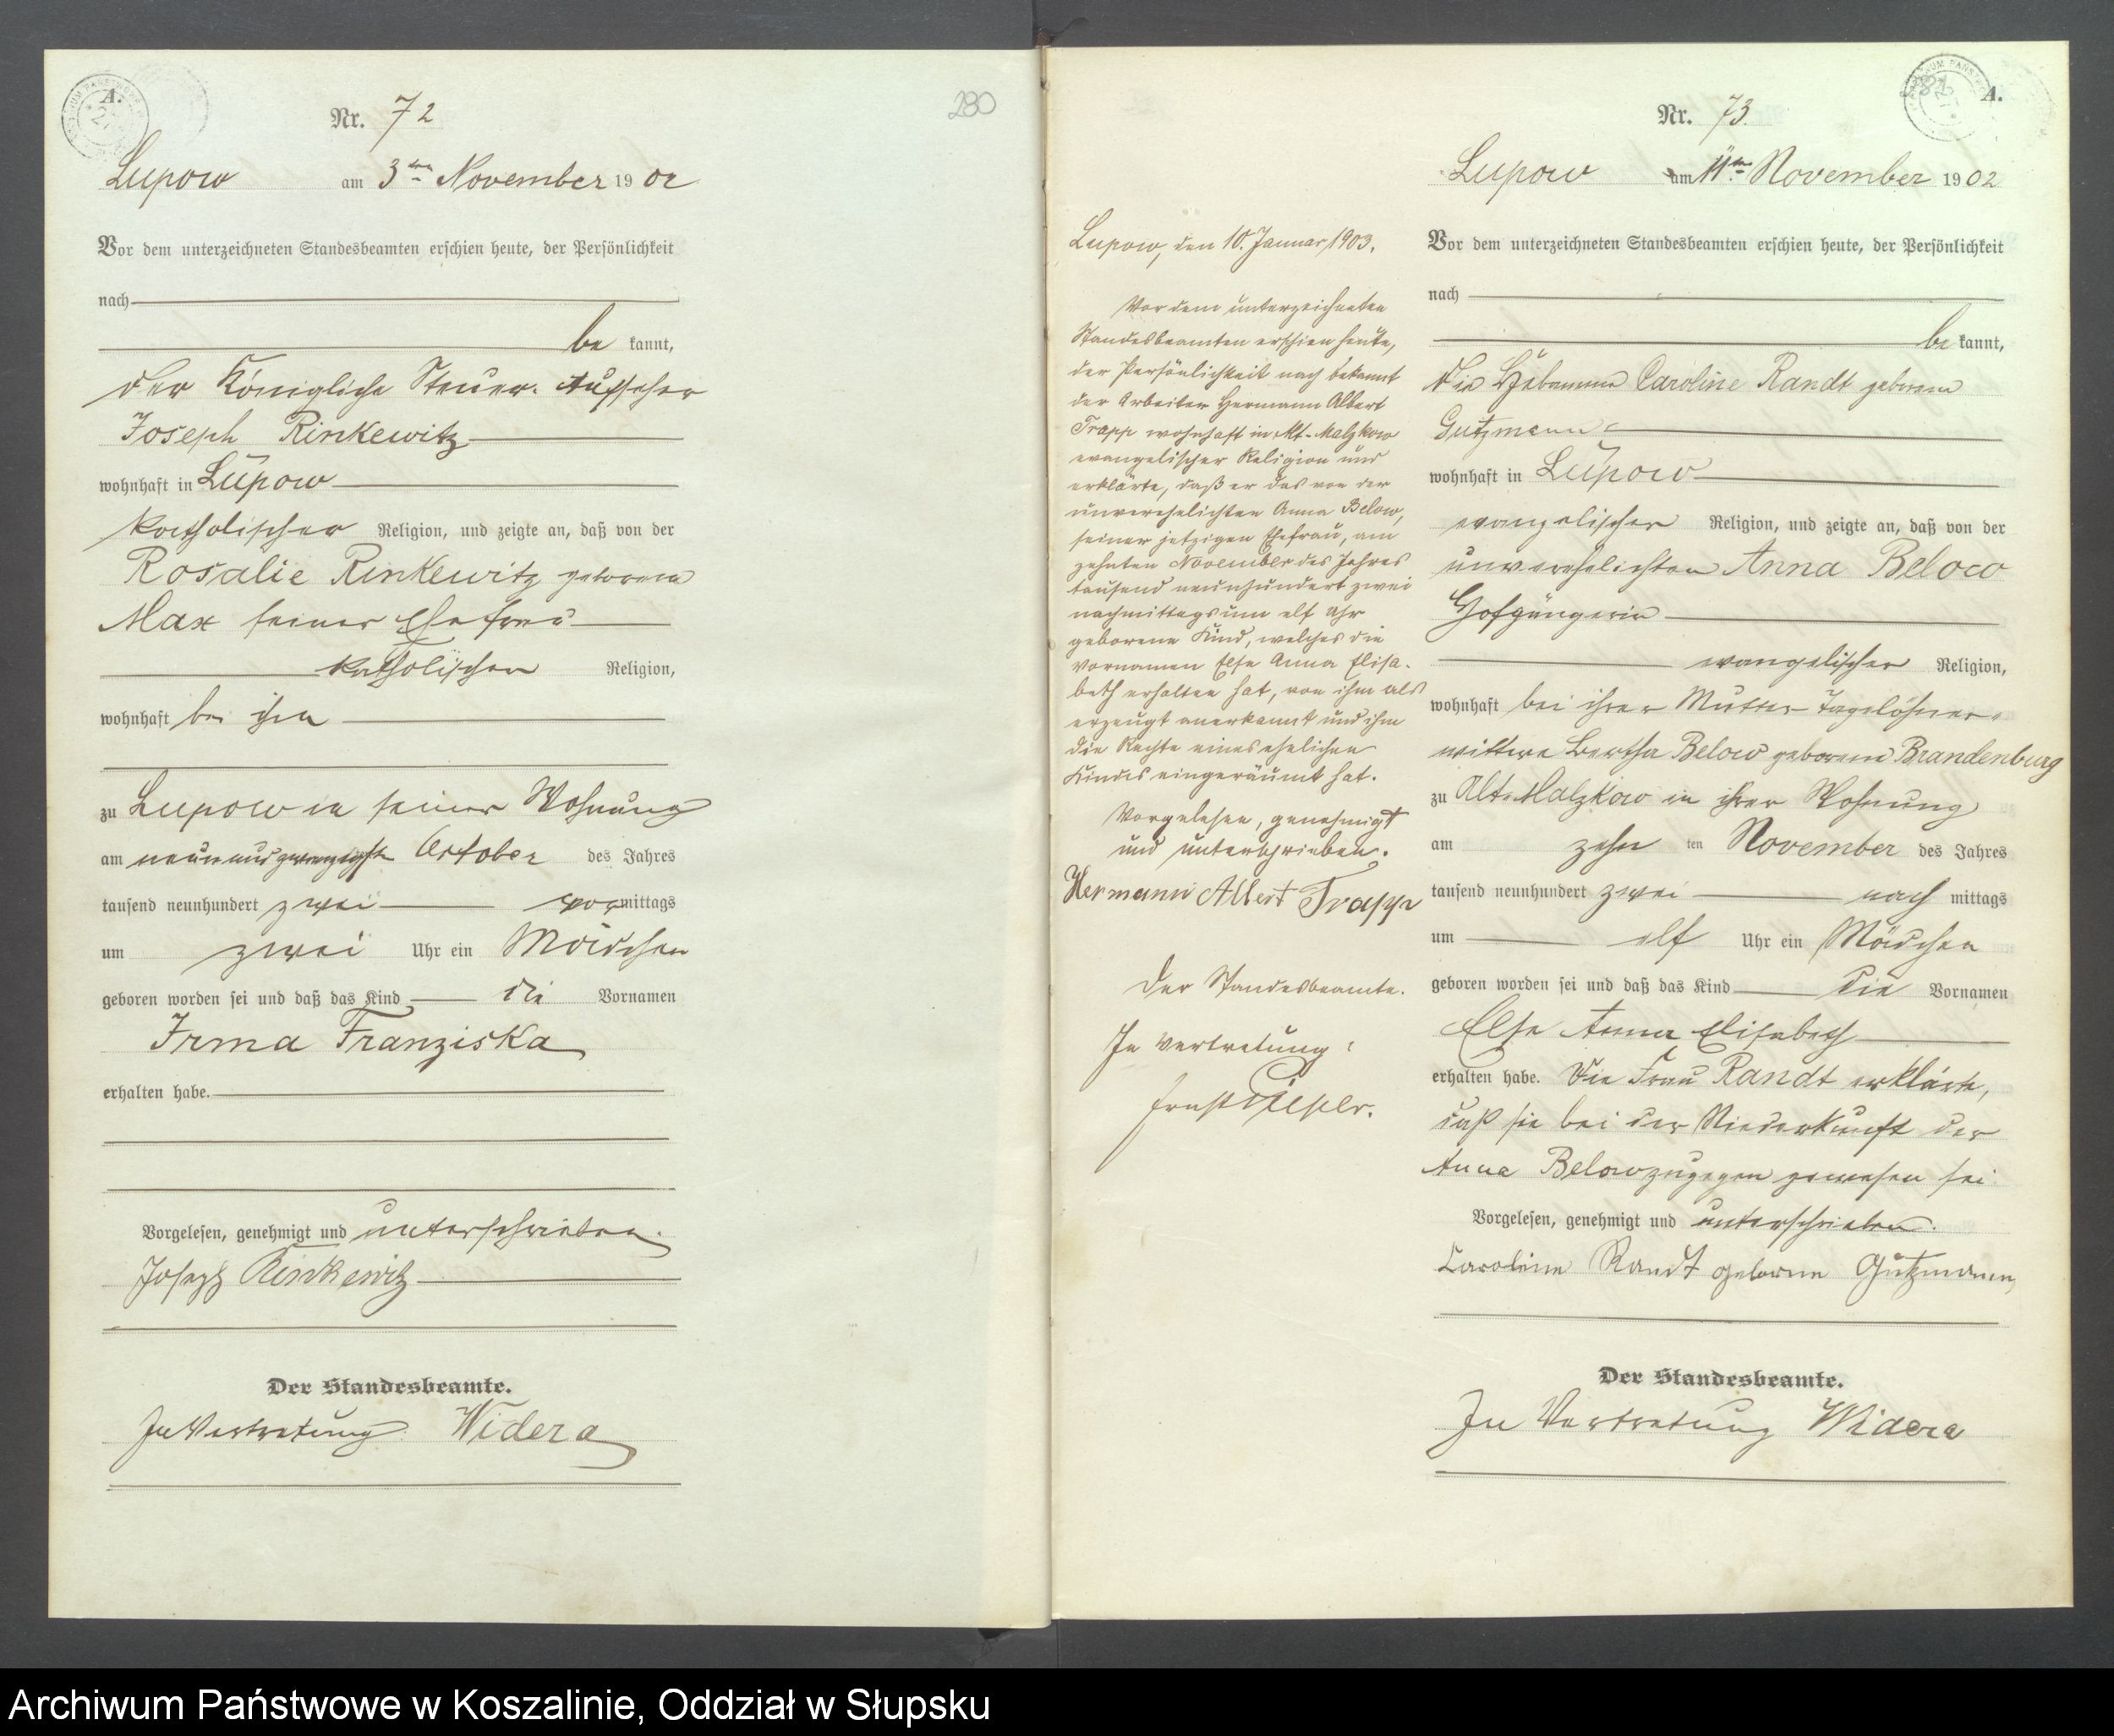 A.
Nr. 72
Lupow am 3ten November 1902
Vor dem unterzeichneten Standesbeamten erschien heute, der Persönlichkeit
nach
be kannt,
der Königliche Steuer-Aufseher
Joseph Rinkewitz
wohnhaft in Lupow
katholischer Religion, und zeigte an, daß von der
Rosalie Rinkewitz geborene
Max seiner Ehefrau
katholischen Religion,
wohnhaft bei ihm
zu Lupow in seiner Wohnung
am neunundzwanzigsten October des Jahres
tausend neunhundert zwei vormittags
um zwei Uhr ein Mädchen
geboren worden sei und daß das Kind die Vornamen
Irma Franziska
erhalten habe.
Vorgelesen, genehmigt und unterschrieben.
Joseph Rinkewitz
Der Standesbeamte.
In Vertretung Widera
280
Lupow, den 10. Januar 1903.
Vor dem unterzeichneten
Standesbeamten erschien heute,
der Persönlichkeit nach bekannt
der Arbeiter Hermann Albert
Trapp wohnhaft in Alt-Malzkow
evangelischer Religion und
erklärte, daß er das von der
unverehelichten Anna Below,
seiner jetzigen Ehefrau, am
zehnten November des Jahres
tausend neunhundert zwei
nachmittags um elf Uhr
geborene Kind, welches die
Vornamen Else Anna Elisa-
beth erhalten hat, von ihm als
erzeugt anerkannt und ihm
die Rechte eines ehelichen
Kindes eingeräumt hat.
Vorgelesen, genehmigt
und unterschrieben.
Hermann Albert Trapp
Der Standesbeamte.
In Vertretung:
Ernst
A.
Nr. 73.
Lupow am 11ten November 1902
Vor dem unterzeichneten Standesbeamten erschien heute, der Persönlichkeit
nach
be kannt,
die Hebamme Caroline Randt geborene
Gutzmann
wohnhaft in Lupow
evangelischer Religion, und zeigte an, daß von der
unverehelichten Anna Below
Hofgängerin
evangelischer Religion,
wohnhaft bei ihrer Mutter Tagelöhner-
wittwe Bertha Below geborene Brandenburg
zu Alt-Malzkow in ihrer Wohnung
am zehn ten November des Jahres
tausend neunhundert zwei nach mittags
um elf Uhr ein Mädchen
geboren worden sei und daß das Kind die Vornamen
Else Anna Elisabeth
erhalten habe. Die Frau Randt erklärte,
daß sie bei der Niederkunft der
Anna Below zugegen gewesen sei
Vorgelesen, genehmigt und unterschrieben.
Caroline Randt geborne Gutzmann
Der Standesbeamte.
In Vertretung Widera
Archiwum Państwowe w Koszalinie, Oddział w Słupsku